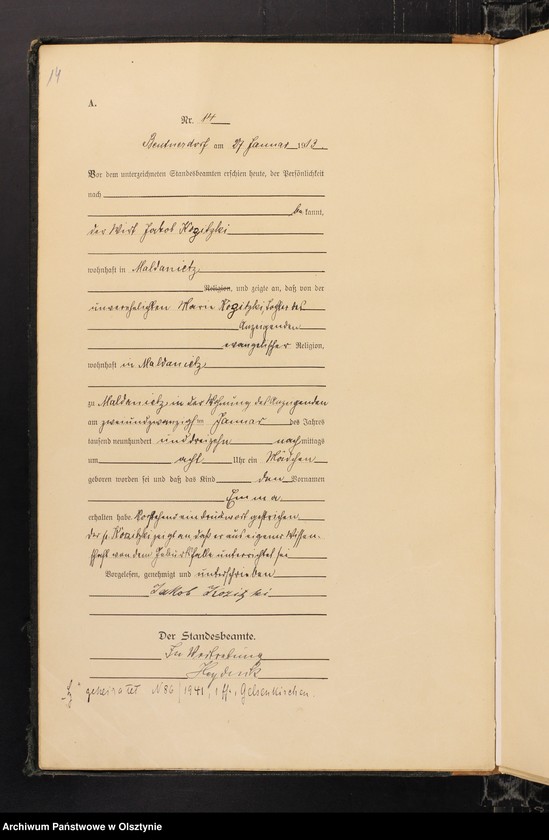 14
A.
Nr. 14
am 27 Januar 1913.
Vor dem unterzeichneten Standesbeamten erschien heute, der Persönlichkeit
nach
be kannt,
der Wirt Jakob Kozitzki
wohnhaft in Maldanietz
Religion, und zeigte an, daß von der
unverehelichten Marie Kozitzki, Tochter des
Anzeigenden
evangelischer Religion,
wohnhaft in Maldanietz
zu Maldanietz in der Wohnung des Anzeigenden
am zweiundzwanzigsten Januar des Jahres
tausend neunhundert und dreizehn nachmittags
um acht Uhr ein Mädchen
geboren worden sei und daß das Kind den Vornamen
Emma
erhalten habe. Vorstehend ein Druckwort gestrichen.
Der p. Kozitzki zeigt an, daß er aus eigener Wissen-
schaft von dem Geburtsfalle unterrichtet sei
Vorgelesen, genehmigt und unterschrieben
Jakob Kozitzki
Der Standesbeamte.
In Vertretung
geheiratet N 86/1941, Gelsenkirchen.
Archiwum Państwowe w Olsztynie